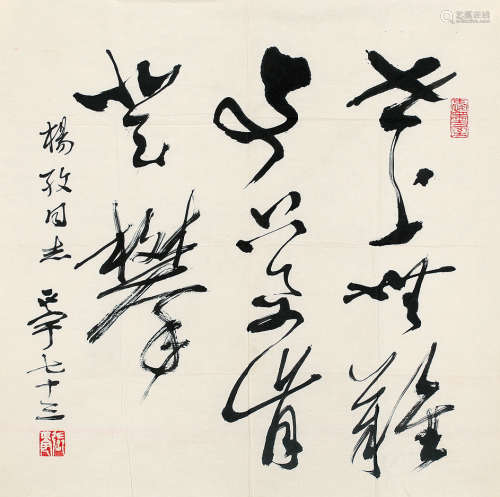 世上無難
事只要肯
登攀
楊孜同志 正宇七十三